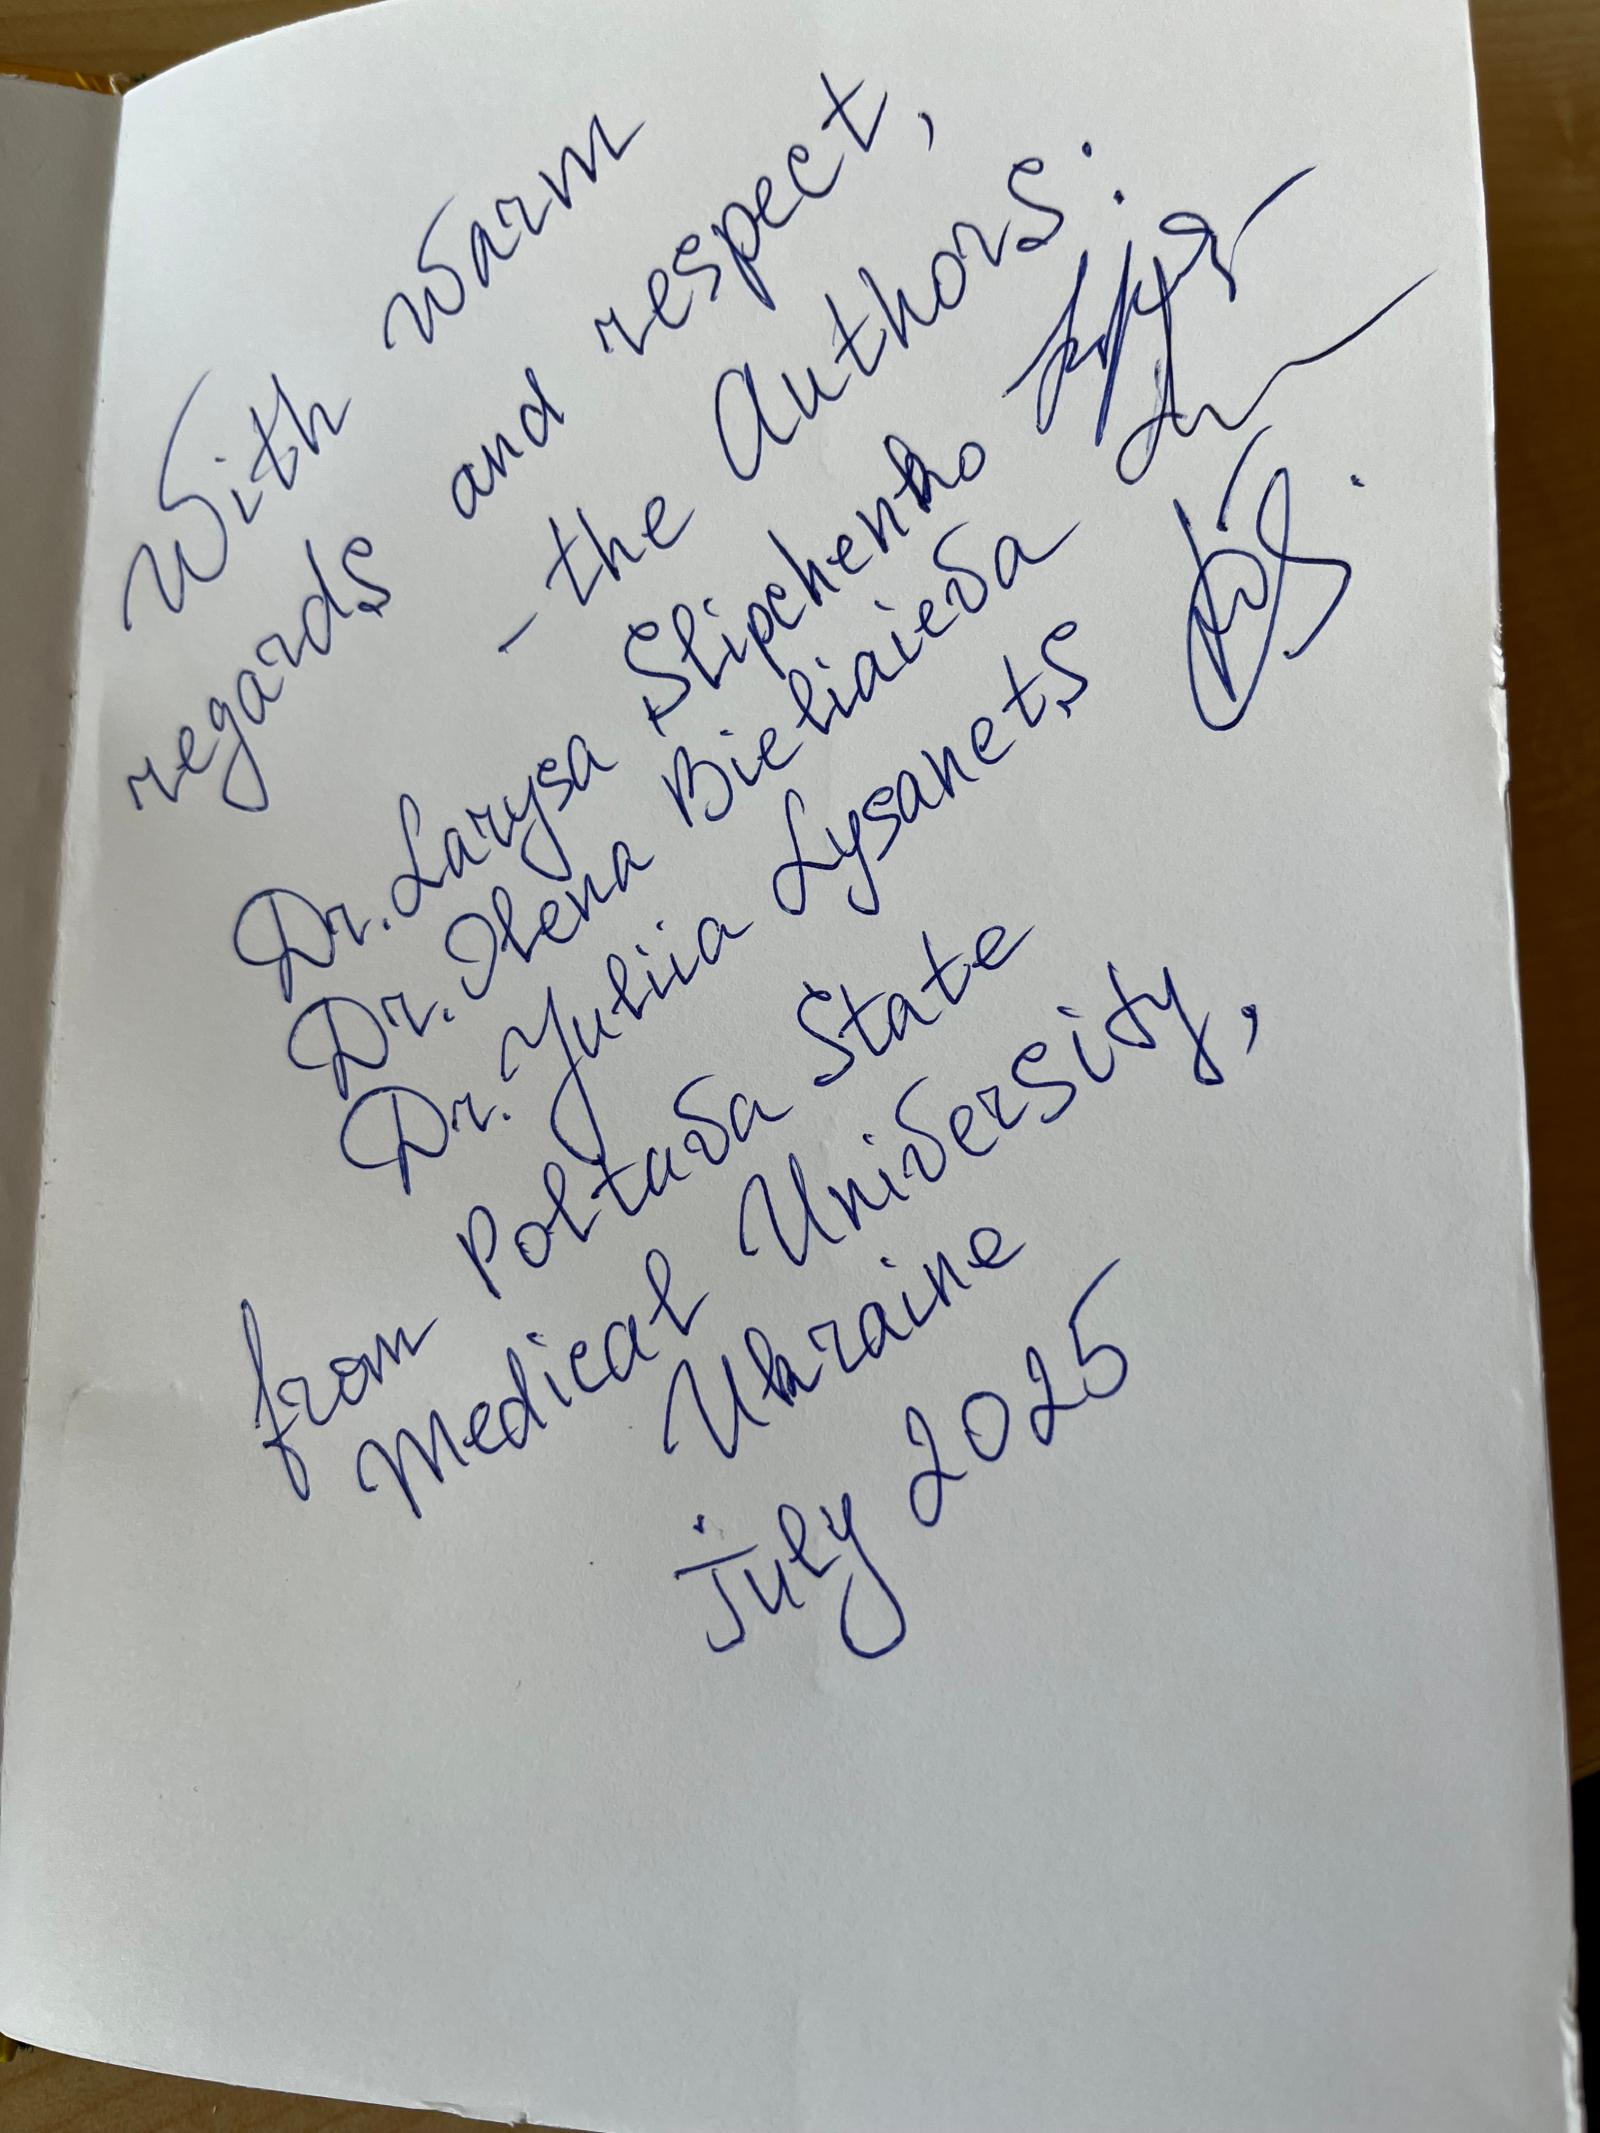 With warm
regards and respect,
- the Authors:
Dr. Larysa Slipchenko
Dr. Olena Bieliaieva
Dr. Yuliia Lysanets
from Poltava State
Medical University,
Ukraine
July 2025